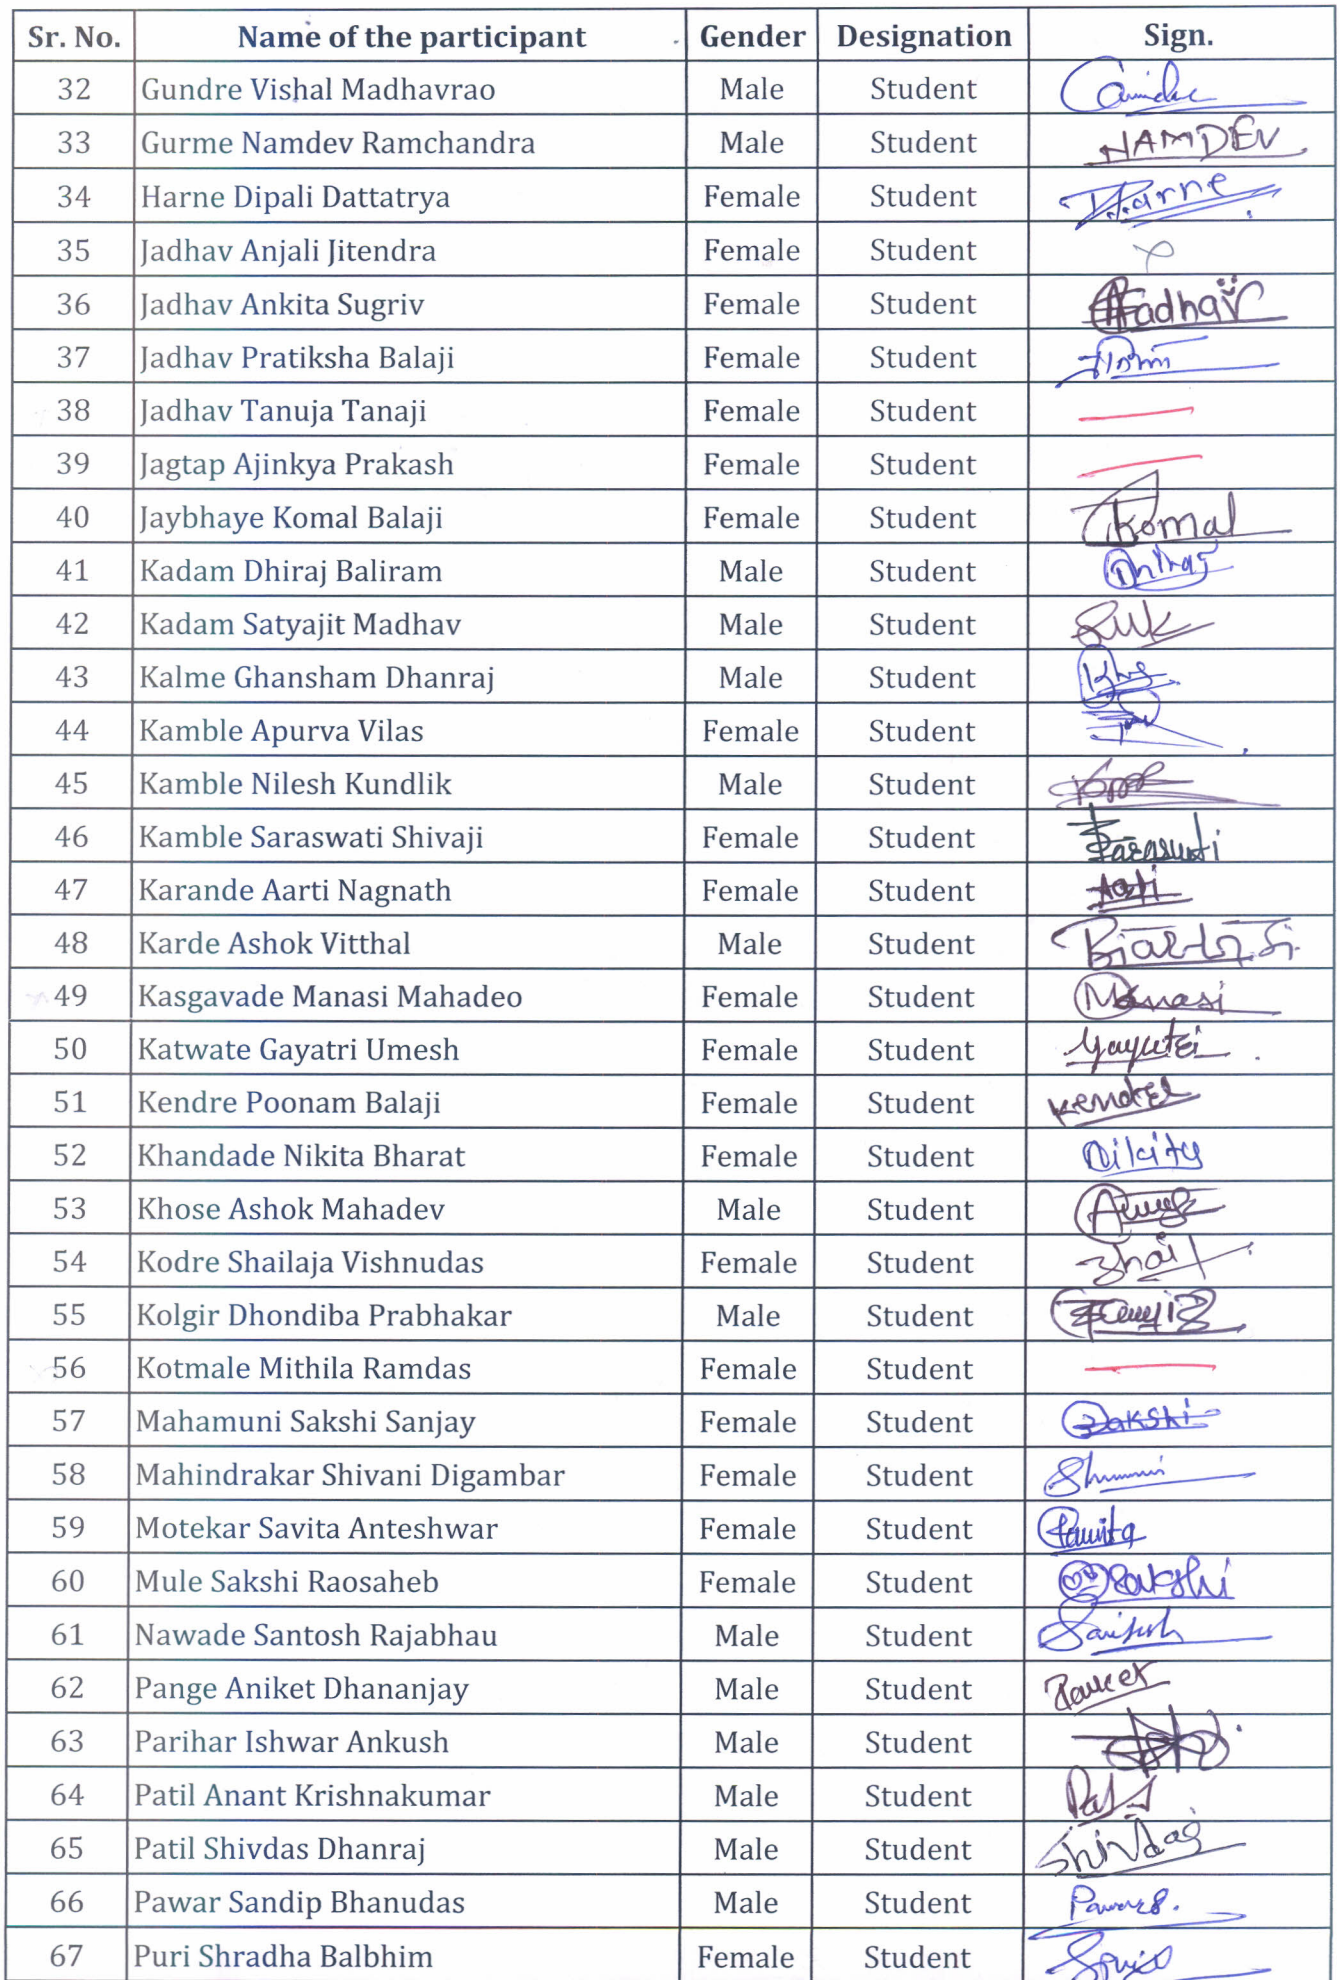 Sr. No. Name of the participant Gender Designation Sign.
32 Gundre Vishal Madhavrao Male Student
33 Gurme Namdev Ramchandra Male Student NAMDEV
34 Harne Dipali Dattatrya Female Student
35 Jadhav Anjali Jitendra Female Student
36 Jadhav Ankita Sugriv Female Student
37 Jadhav Pratiksha Balaji Female Student
38 Jadhav Tanuja Tanaji Female Student
39 Jagtap Ajinkya Prakash Female Student
40 Jaybhaye Komal Balaji Female Student Komal
41 Kadam Dhiraj Baliram Male Student
42 Kadam Satyajit Madhav Male Student
43 Kalme Ghansham Dhanraj Male Student
44 Kamble Apurva Vilas Female Student
45 Kamble Nilesh Kundlik Male Student
46 Kamble Saraswati Shivaji Female Student
47 Karande Aarti Nagnath Female Student
48 Karde Ashok Vitthal Male Student
49 Kasgavade Manasi Mahadeo Female Student Manasi
50 Katwate Gayatri Umesh Female Student
51 Kendre Poonam Balaji Female Student
52 Khandade Nikita Bharat Female Student
53 Khose Ashok Mahadev Male Student
54 Kodre Shailaja Vishnudas Female Student
55 Kolgir Dhondiba Prabhakar Male Student
56 Kotmale Mithila Ramdas Female Student
57 Mahamuni Sakshi Sanjay Female Student Sakshi
58 Mahindrakar Shivani Digambar Female Student
59 Motekar Savita Anteshwar Female Student
60 Mule Sakshi Raosaheb Female Student Sakshi
61 Nawade Santosh Rajabhau Male Student
62 Pange Aniket Dhananjay Male Student
63 Parihar Ishwar Ankush Male Student
64 Patil Anant Krishnakumar Male Student
65 Patil Shivdas Dhanraj Male Student Shivdas
66 Pawar Sandip Bhanudas Male Student
67 Puri Shradha Balbhim Female Student